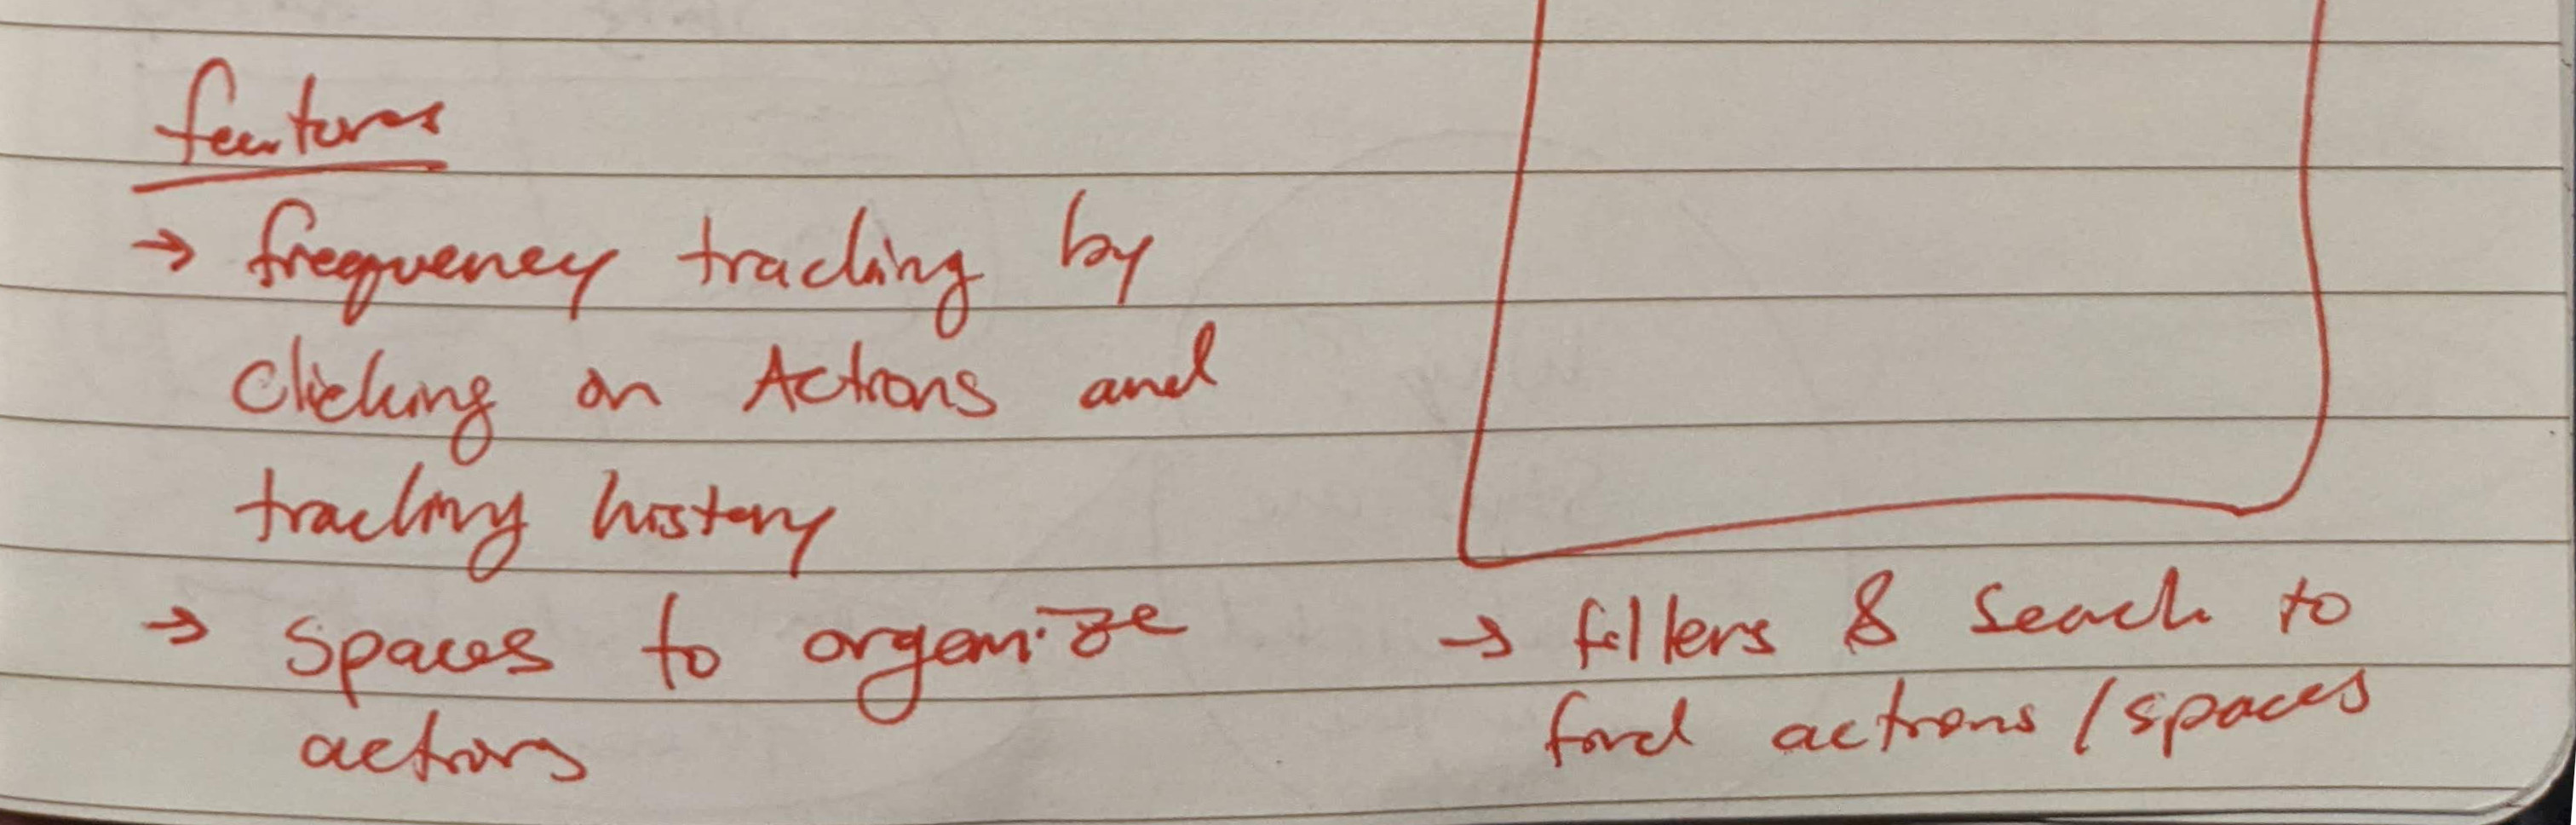 features
→ frequency tracking by
clicking on Actions and
tracking history
→ spaces to organize
actions
→ filters & search to
find actions / spaces